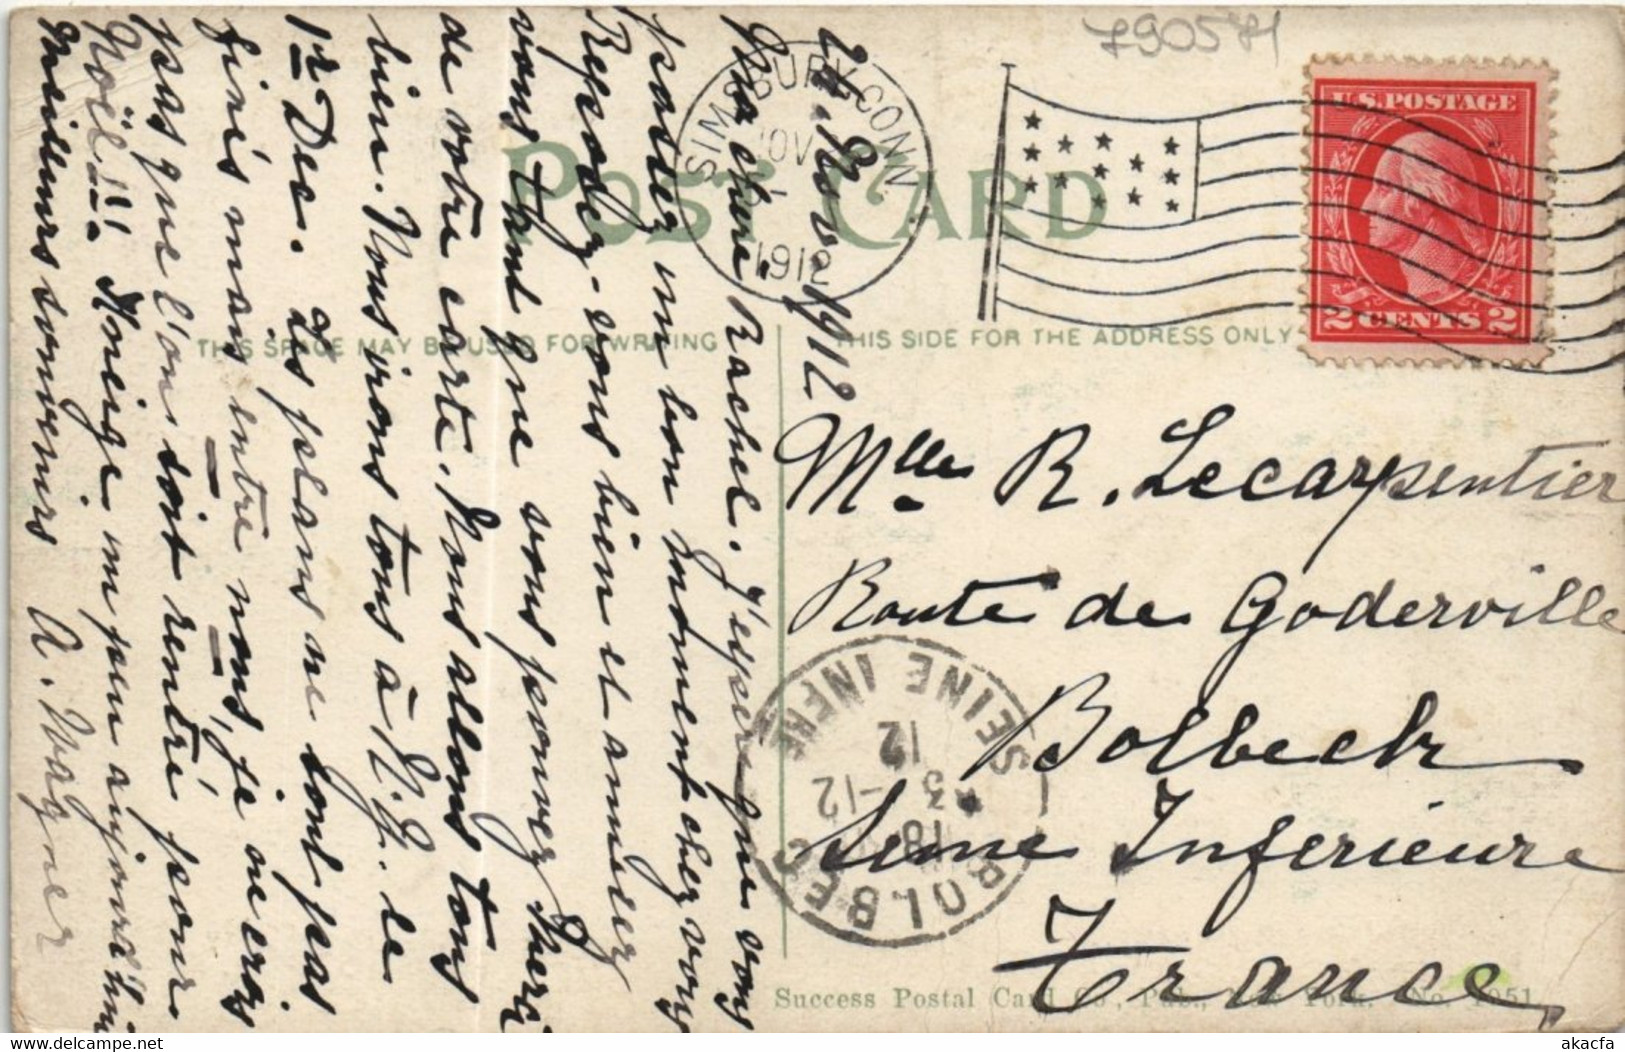 790571
U.S. POSTAGE
2 CENTS 2
SIMSBURY, CONN.
NOV
1912
POST CARD
THIS SPACE MAY BE USED FOR WRITING
THIS SIDE FOR THE ADDRESS ONLY
24 Nov. 1912
Ma chère Rachel. J'espère que vous
passez un bon moment chez vous
Reposez-vous bien et amusez
vous tant que vous pouvez. Merci
de votre carte. Nous allons tous
bien. Nous irons tous à N.Y. le
1r Dec. Les plans ne sont pas
finis mais entre nous, je ne crois
pas que l'on soit rentré pour
Noël!!! Il neige un peu aujourd'hui
Meilleurs souvenirs A. Wagner
Mlle R. Lecarpentier
Route de Goderville
Bolbech
Seine Inferieure
France
BOLBEC
SEINE INFRE
18
3 -12
12
Success Postal Card Co., Pub., New York. No. 1051
akacfa